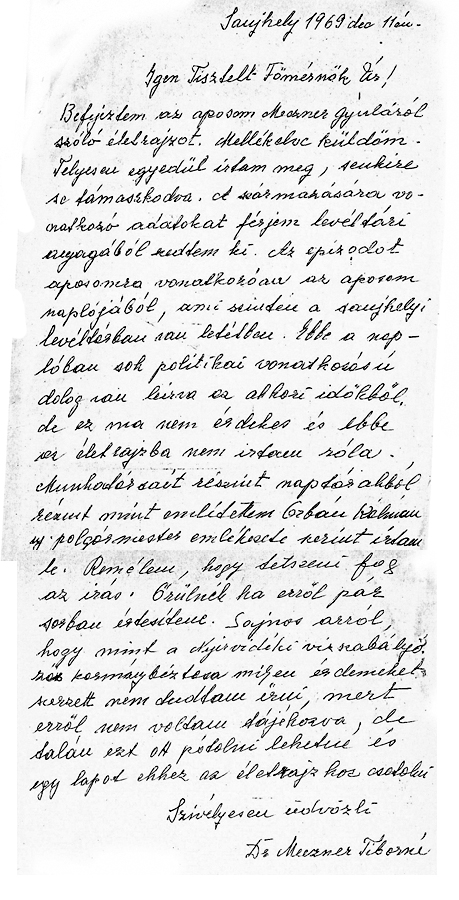 Saujhely 1969 dec 11én.
Igen Tisztelt Főmérnök Úr!
Befejeztem az aposom Meczner Gyuláról
szóló életrajzot. Mellékelve küldöm.
Telyesen egyedül írtam meg, senkire
se támaszkodva. A származására vo-
natkozó adatokat férjem levéltári
anyagából szedtem ki. Az epizodot
aposomra vonatkozóan az aposom
naplójából, ami szintén a saujhelyi
levéltárban van letétben. Ebbe a nap-
lóban sok politikai vonatkozásu
dolog van leírva az akkori időkből,
de ez ma nem érdekes és ebbe
az életrajzba nem írtam róla.
Munkatársait részint naptárakból
részint mint említettem Orbán Kálmán
ny. polgármester emlékezete szerint írtam
le. Remélem, hogy tetszeni fog
az írás. Örülnék ha erről pár
sorban értesítene. Sajnos arról,
hogy mint a Nyírvidéki vízszabályo-
zás kormánybiztosa milyen érdemeket
szerzett nem tudtam írni, mert
erről nem voltam tájékozva, de
talán ezt ott pótolni lehetne és
egy lapot ehhez az életrajzhoz csatolni
Szívélyesen üdvözli
Dr Meczner Tiborné